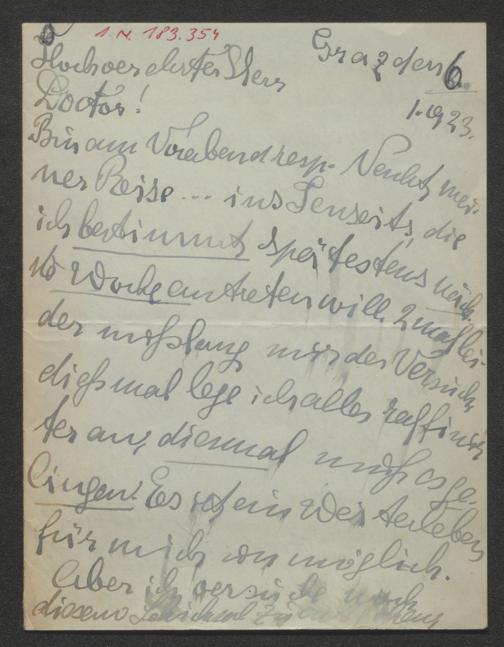 I.N. 183.354
Graz den 6.
Hochverehrter Herr
Doctor!
1. 1923.
Bin am Vorabend resp. Nacht mei-
ner Reise... ins Jenseits, die
ich bestimmt spätestens näch-
ste Woche antreten will. 2 mal lei-
der mißlang mir der Versuch,
dießmal lege ich alles raffinir
ter an, diesmal muß es ge-
lingen! Es ist ein Weiterleben
für mich unmöglich.
Aber ich versuche noch
diesem Schicksal zu